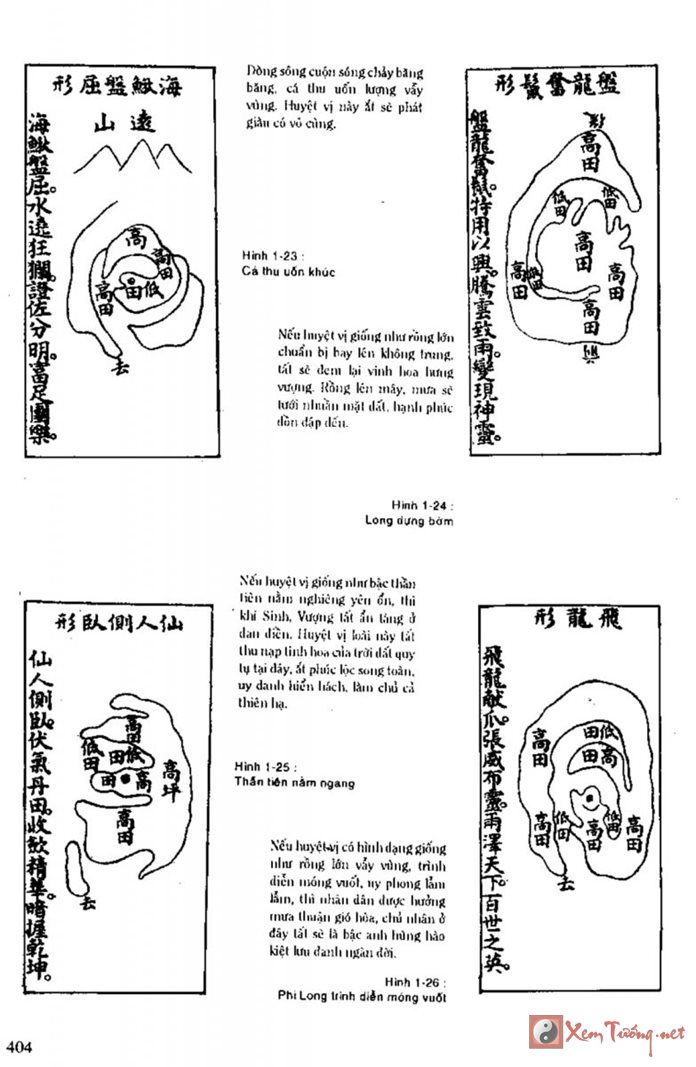 形屈盤鰍海
山遠
海鰍盤屈。水遶狂瀾。證佐分明。富足團樂。
高
高田
高田
低田
去
Dòng sông cuộn sóng chảy băng
băng, cá thu uốn lượng vẫy
vùng. Huyệt vị này ắt sẽ phát
giàu có vô cùng.
Hình 1-23 :
Cá thu uốn khúc
形鬣奮龍盤
盤龍奮鬣。特用以興。騰雲致雨。變現神靈。
高田
低田
低田
高田
高田
低田
高田
高田
Nếu huyệt vị giống như rồng lớn
chuẩn bị bay lên không trung,
tất sẽ đem lại vinh hoa hưng
vượng. Rồng lên mây, mưa sẽ
tưới nhuần mặt đất, hạnh phúc
dồn dập đến.
Hình 1-24 :
Long dựng bờm
形臥側人仙
仙人側臥。伏氣丹田。收斂精華。暗握乾坤。
高田
低田
田低
田
高
高坪
高田
去
Nếu huyệt vị giống như bậc thần
tiên nằm nghiêng yên ổn, thì
khí Sinh, Vượng tất ẩn tàng ở
đan điền. Huyệt vị loại này tất
thu nạp tinh hoa của trời đất quy
tụ tại đây, ắt phúc lộc song toàn,
uy danh hiển hách, làm chủ cả
thiên hạ.
Hình 1-25 :
Thần tiên nằm ngang
形龍飛
飛龍獻爪。張威布靈。雨澤天下。百世之英。
高田
田低
田高
高田
低田
高田
低田
高田
去
Nếu huyệt vị có hình dạng giống
như rồng lớn vẫy vùng, trình
diễn móng vuốt, uy phong lẫm
lẫm, thì nhân dân được hưởng
mưa thuận gió hòa, chủ nhân ở
đây tất sẽ là bậc anh hùng hào
kiệt lưu danh ngàn đời.
Hình 1-26 :
Phi Long trình diễn móng vuốt
404
XemTướng.net